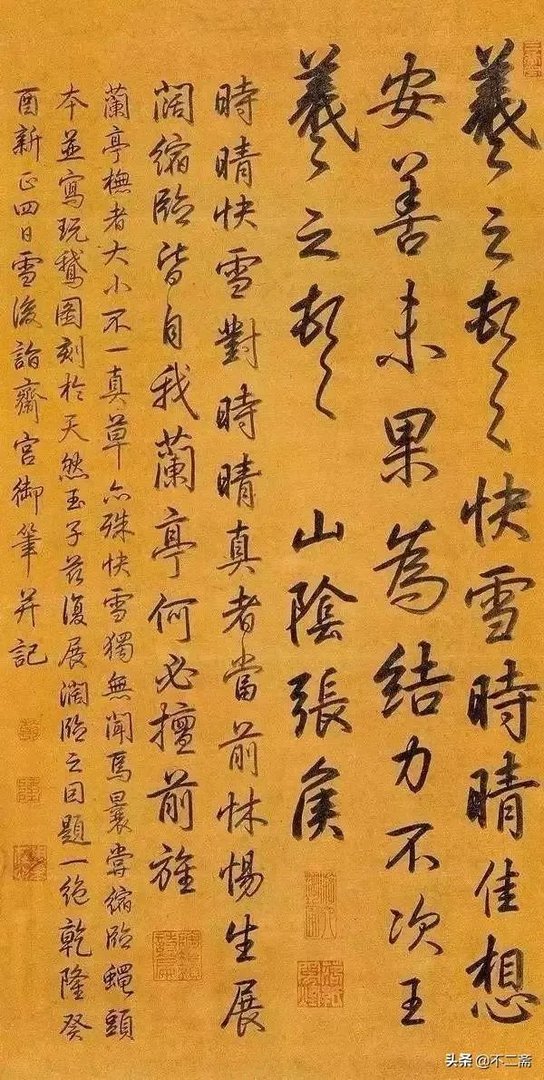 羲之頓首快雪時晴佳想
安善未果為結力不次王
羲之頓首 山陰張侯
時晴快雪對時晴真者當前怵惕生展
闊縮臨皆自我蘭亭何必擅前旌
蘭亭橅者大小不一真草亦殊快雪獨無聞焉曩嘗縮臨蠅頭
本並寫玩鵝圖刻於天然玉子茲復展闊臨之因題一絕乾隆癸
酉新正四日雪後詣齋宮御筆并記
头条 @不二斋